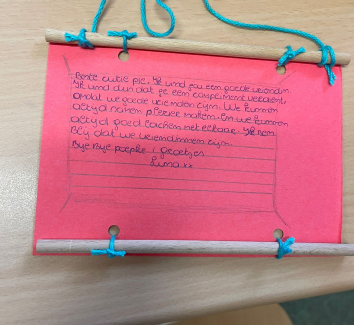 Beste cutie pie, Ik vind jou een goede vriendin
Ik vind dus dat je een compliment verdient,
omdat we goede vrienden zijn. We kunnen
altijd samen plezier maken. En we kunnen
altijd goed lachen met elkaar. Ik ben
blij dat we vriendinnen zijn.
Bye Bye poepke! groetjes
Luna xx